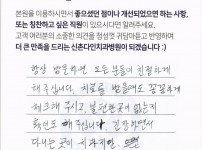 본원을 이용하시면서 좋으셨던 점이나 개선되었으면 하는 사항,
또는 칭찬하고 싶은 직원이 있으시다면 알려주세요.
고객 여러분의 소중한 의견을 정성껏 귀담아듣고 반영하여
더 큰 만족을 드리는 신촌다인치과병원이 되겠습니다 :)
항상 방문하면 모든 분들이 친절하게
해주십니다. 치료를 받을때도 꼼꼼하게
체크해 주시고 불편한곳이 없는지
확인도 해주십니다. 건강하면서
다니는 곳이 치과지만